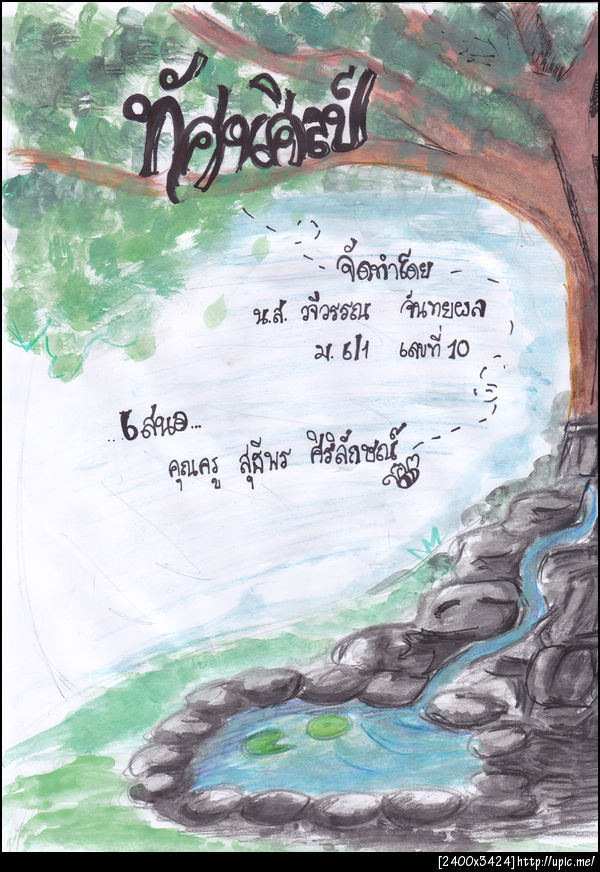 ทัศนศิลป์
จัดทำโดย
น.ส. วจีวรรณ จันทยผล
ม. 6/1 เลขที่ 10
..เสนอ...
คุณครู สุธีพร ศิริลักษณ์
[2400x3424]http://upic.me/